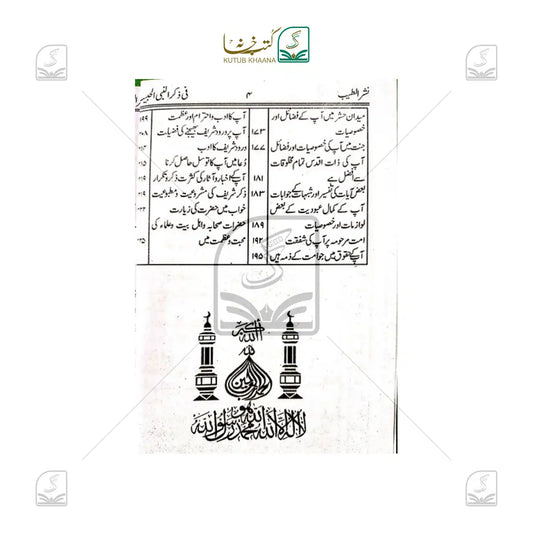 کتب خانہ
KUTUB KHAANA
نشر الطیب
۴
فی ذکر النبی الحبیب
میدان حشر میں آپ کے فضائل اور
خصوصیات ۱۷۳
جنت میں آپ کی خصوصیات اور فضائل ۱۷۷
آپ کی ذات اقدس تمام مخلوقات
سے افضل ہے ۱۸۱
بعض آیات کی تفسیر اور شبہات کے جوابات ۱۸۳
آپ کے کمال عبودیت کے بعض
لوازمات اور خصوصیات ۱۸۹
امت مرحومہ پر آپ کی شفقت ۱۹۲
آپ کے حقوق میں جو امت کے ذمہ ہیں ۱۹۵
آپ کا ادب و احترام اور عظمت ۱۹۹
آپ پر درود شریف بھیجنے کی فضیلت ۲۰۸
درود شریف کا ادب
دعا میں آپ کا توسل حاصل کرنا
آپ کے اخبار و آثار کی کثرت ذکر و تکرار
ذکر شریف کی مشروعیت و مطبوعیت
خواب میں حضرت کی زیارت
حضرات صحابہ و اہل بیت و علماء کی
محبت و عظمت میں
الله أكبر
لله
الحمد لله رب العالمين
لا اله الا الله محمد رسول الله